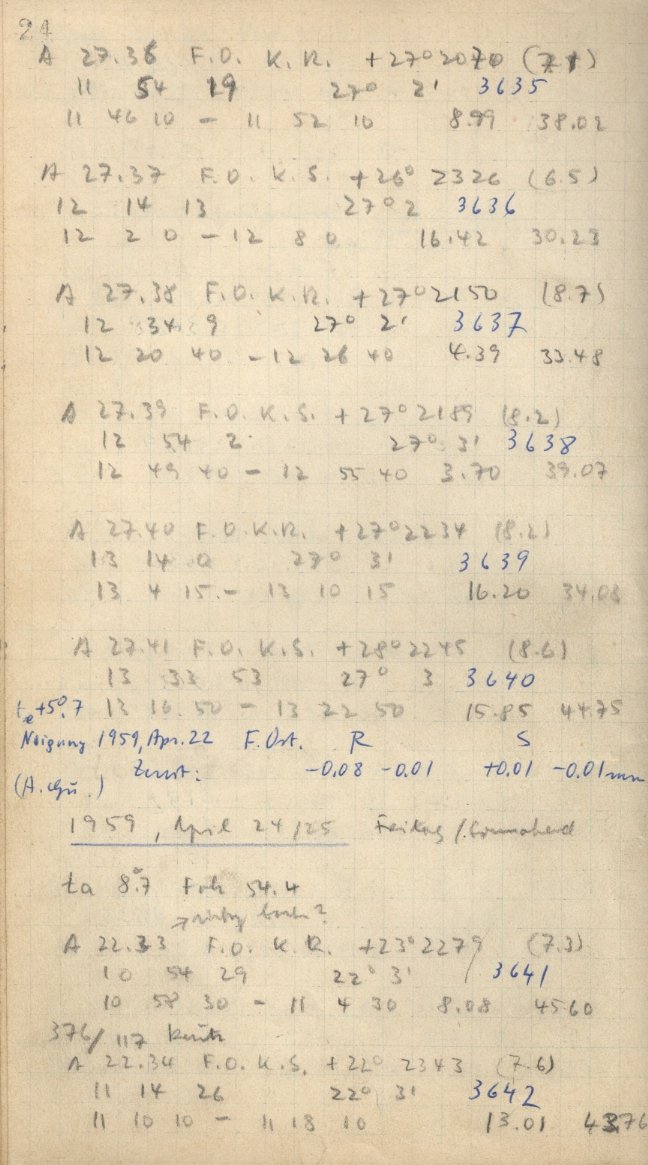 24
A 27.36 F.O. K.R. +27° 2070 (7.1)
11 54 19 27° 2' 3635
11 46 10 – 11 52 10 8.99 38.02
A 27.37 F.O. K.S. +26° 2326 (6.5)
12 14 13 27° 2 3636
12 2 0 – 12 8 0 16.42 30.23
A 27.38 F.O. K.R. +27° 2150 (8.7)
12 34 9 27° 2' 3637
12 20 40 – 12 26 40 4.39 33.48
A 27.39 F.O. K.S. +27° 2189 (8.2)
12 54 2 27° 3' 3638
12 49 40 – 12 55 40 3.70 39.07
A 27.40 F.O. K.R. +27° 2234 (8.2)
13 14 0 27° 3' 3639
13 4 15 – 13 10 15 16.20 34.08
A 27.41 F.O. K.S. +28° 2245 (8.6)
13 33 53 27° 3 3640
te +5°.7 13 16 50 – 13 22 50 15.85 44.75
Neigung 1959, Apr. 22 F. Ost. R S
–0.08 –0.01 +0.01 –0.01 mm
1959, April 24/25 Freitag / Sonnabend
ta 8°.7 Fok 54.4
A 22.33 F.O. K.R. +23° 2279 (7.3)
10 54 29 22° 3' 3641
10 58 30 – 11 4 30 8.08 45.60
376/117
A 22.34 F.O. K.S. +22° 2343 (7.6)
11 14 26 22° 3' 3642
11 10 10 – 11 18 10 13.01 43.76